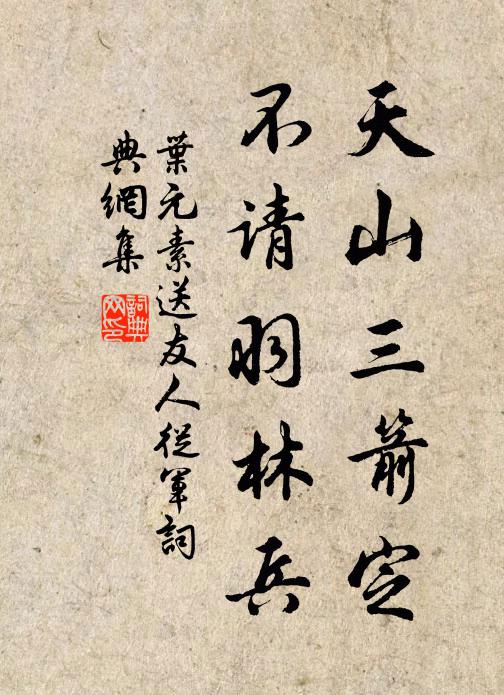 天山三箭定
不请羽林兵
葉元素送友人從軍詞
典網集
詞典
网印